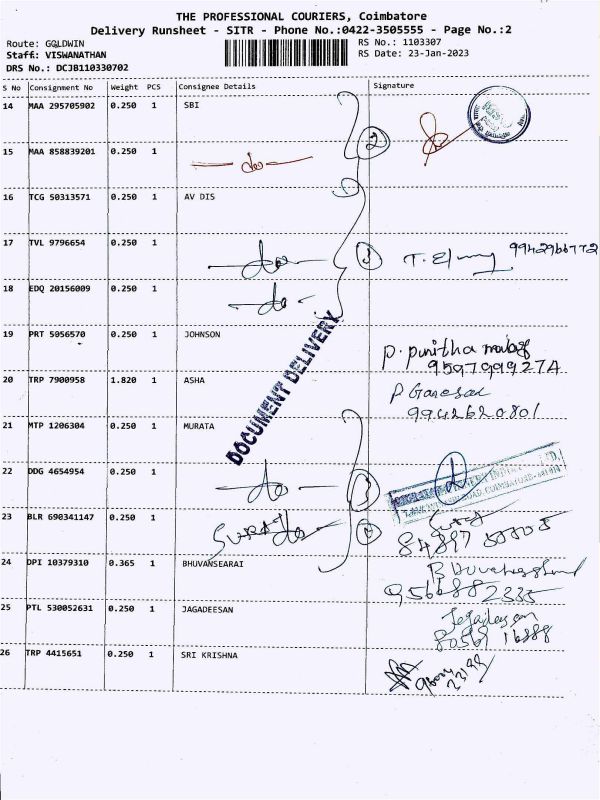 THE PROFESSIONAL COURIERS, Coimbatore
Delivery Runsheet - SITR - Phone No.:0422-3505555 - Page No.:2
Route: GOLDWIN
RS No.: 1103307
Staff: VISWANATHAN
RS Date: 23-Jan-2023
DRS No.: DCJB110330702
S No Consignment No Weight PCS Consignee Details Signature
14 MAA 295705902 0.250 1 SBI
2
15 MAA 858839201 0.250 1 do
16 TCG 50313571 0.250 1 AV DIS
17 TVL 9796654 0.250 1 do 3
18 EDQ 20156009 0.250 1 do
DOCUMENT DELIVERY
19 PRT 5056570 0.250 1 JOHNSON P. Punitha
9597999274
20 TRP 7900958 1.820 1 ASHA P Ganesan
9942620801
21 MTP 1206304 0.250 1 MURATA
22 DDG 4654954 0.250 1 do
23 BLR 690341147 0.250 1
24 DPI 10379310 0.365 1 BHUVANSEARAI
25 PTL 530052631 0.250 1 JAGADEESAN Jegadeesan
80569 16888
26 TRP 4415651 0.250 1 SRI KRISHNA